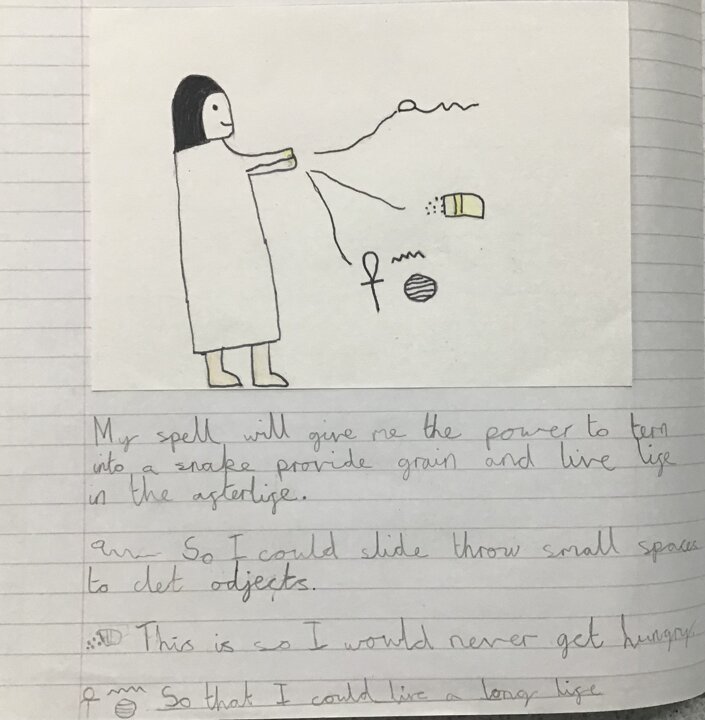 My spell will give me the power to tern
into a snake provide grain and live life
in the afterlife.
So I could slide throw small spaces
to det odjects.
This is so I would never get hungry
So that I could live a long life